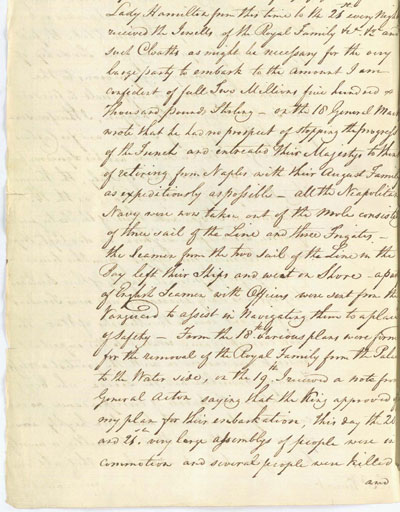 Lady Hamilton from this time to the 21st every Night
received the Jewells of the Royal Family &c. &c. and
such Cloaths as might be necessary for the very
large party to embark to the amount I am
confident of full Two Millions five hundred
thousand pounds Sterling – on the 18 General Mack
wrote that he had no prospect of stopping the progress
of the French and entreated Their Majestys to think
of retiring from Naples with their August Family
as expeditiously as possible – all the Neapolitan
Navy were now taken out of the Mole consisting
of three sail of the Line and three Frigates –
the Seamen from the two sail of the Line in the
Bay left their Ships and went on Shore – a party
of English Seamen with Officers were sent from the
Vanguard to assist in Navigating them to a place
of safety – From the 18th various plans were formed
for the removal of the Royal Family from the Palace
to the Water side, on the 19th I received a note from
General Acton saying that the King approved of
my plan for their embarkation, this day the 20
and 21st very large assemblys of people were in
commotion and several people were killed
and